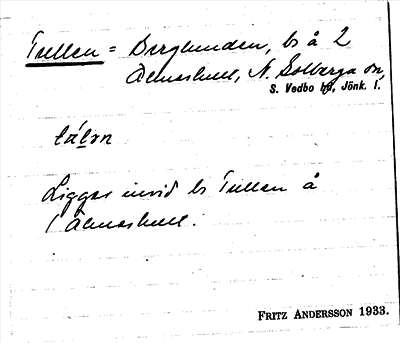 Tullen = Berglunden, ls å 2
Älmeshult, N. Solberga sn,
S. Vedbo hd, Jönk. l.
Ligger invid ls Tullen å
1 Älmeshult.
FRITZ ANDERSSON 1933.